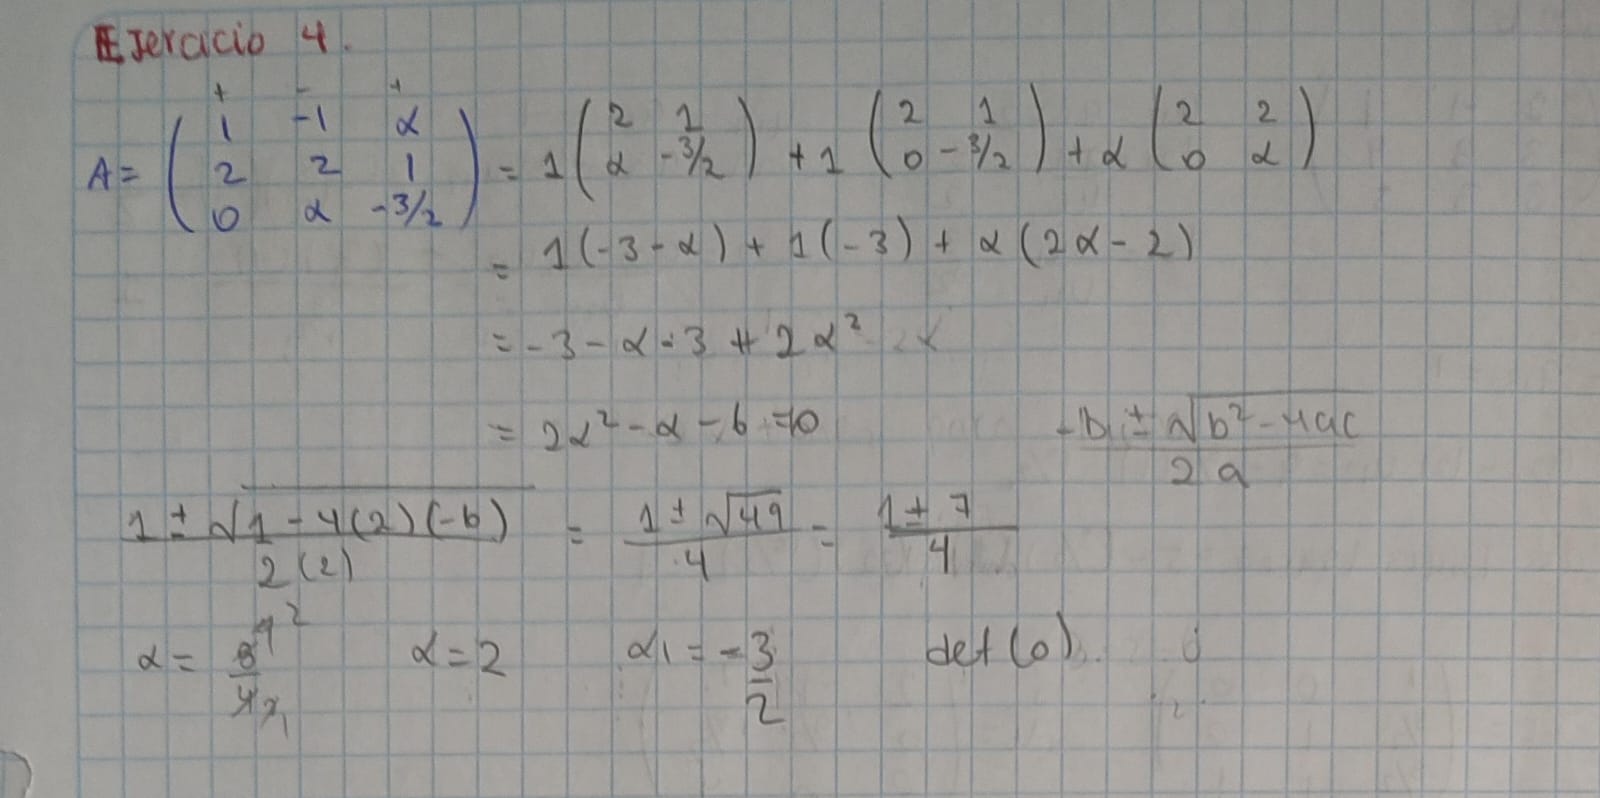 Ejercicio 4.
+ - +
A = ( 1 -1 α ; 2 2 1 ; 0 α -3/2 ) = 1 ( 2 1 ; α -3/2 ) + 1 ( 2 1 ; 0 -3/2 ) + α ( 2 2 ; 0 α )
= 1(-3-α) + 1(-3) + α(2α-2)
= -3 - α - 3 + 2α²
= 2α² - α - 6 = 0
-b ± √b² - 4ac / 2a
1 ± √1 - 4(2)(-6) / 2(2) = 1 ± √49 / 4 = 1 ± 7 / 4
α = 8/4 α = 2 α1 = -3/2 det(0)